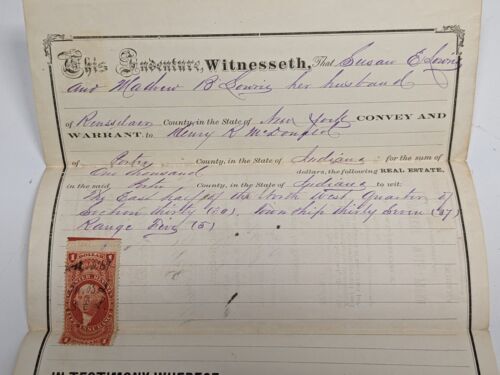 This Indenture, Witnesseth, That Susan E Lowrie
and Mathew B Lowrie her husband
of Rensselaer County, in the State of New York CONVEY AND
WARRANT, to Henry R McDonald
of Porter County, in the State of Indiana for the sum of
One thousand dollars, the following REAL ESTATE,
in the said Porter County, in the State of Indiana to wit:
East half of the North West Quarter of
Section thirty (30), Township thirty Seven (37)
Range Five (5)
1 DOLLAR 1
1 1
IN TESTIMONY WHEREOF